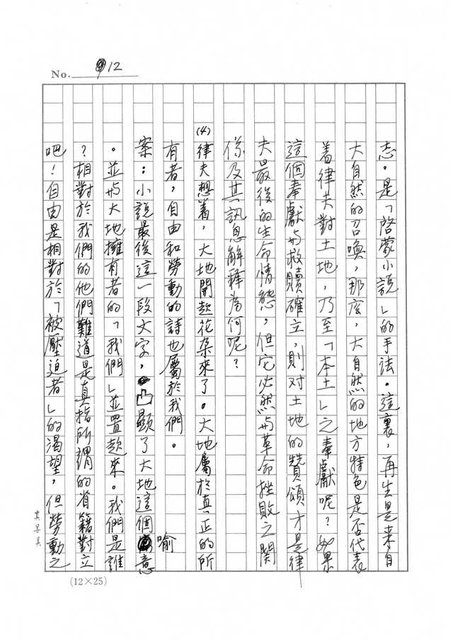 No. 12
志。是「啓蒙小說」的手法。這裏，再生是來自
大自然的召喚，那麼，大自然的地方特色是否代表
着律夫對土地，乃至「本土」之奉獻呢？如果
這個奉獻与救贖確立，則对土地的贊頌才是律
夫最後的生命情態，但它必然与革命挫敗之関
係及其訊息解釋為何呢？
(4)律夫想着，大地開起花朵來了。大地屬於真正的所
有者，自由和勞動的詩也屬於我們。
案：小說最後這一段文字，凸顯了大地這個意喻
。並与大地擁有者的「我們」並置起來。我們是誰
？相對於我們的他們難道是真指所謂的省籍對立
吧！自由是相對於「被壓迫者」的渴望，但勞動之
(12×25)